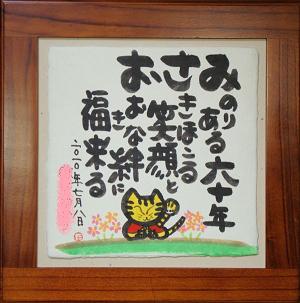 みのりある六十年
さきほこる笑顔と
おおきな絆に
福来る
二〇一〇年七月八日